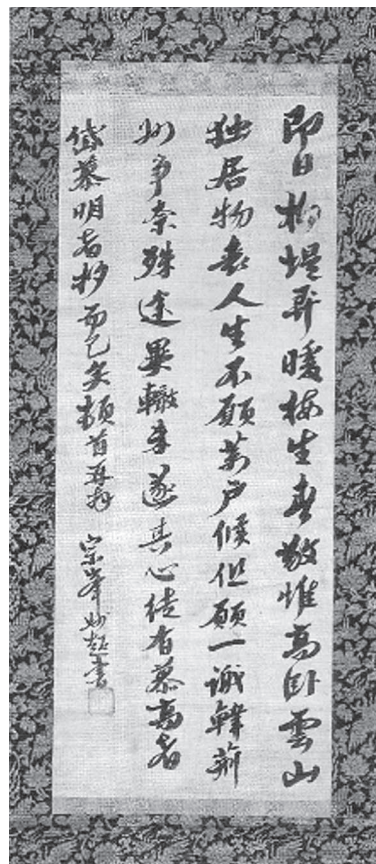 即日柳堤弄暖梅生春敬惟高臥雲山
独居物表人生不願萬戸候但願一識韓荊
州争奈殊途異轍未遂其心徒有慕高者
岱慕明者抄而已矣頓首再拜 宗峯妙超書